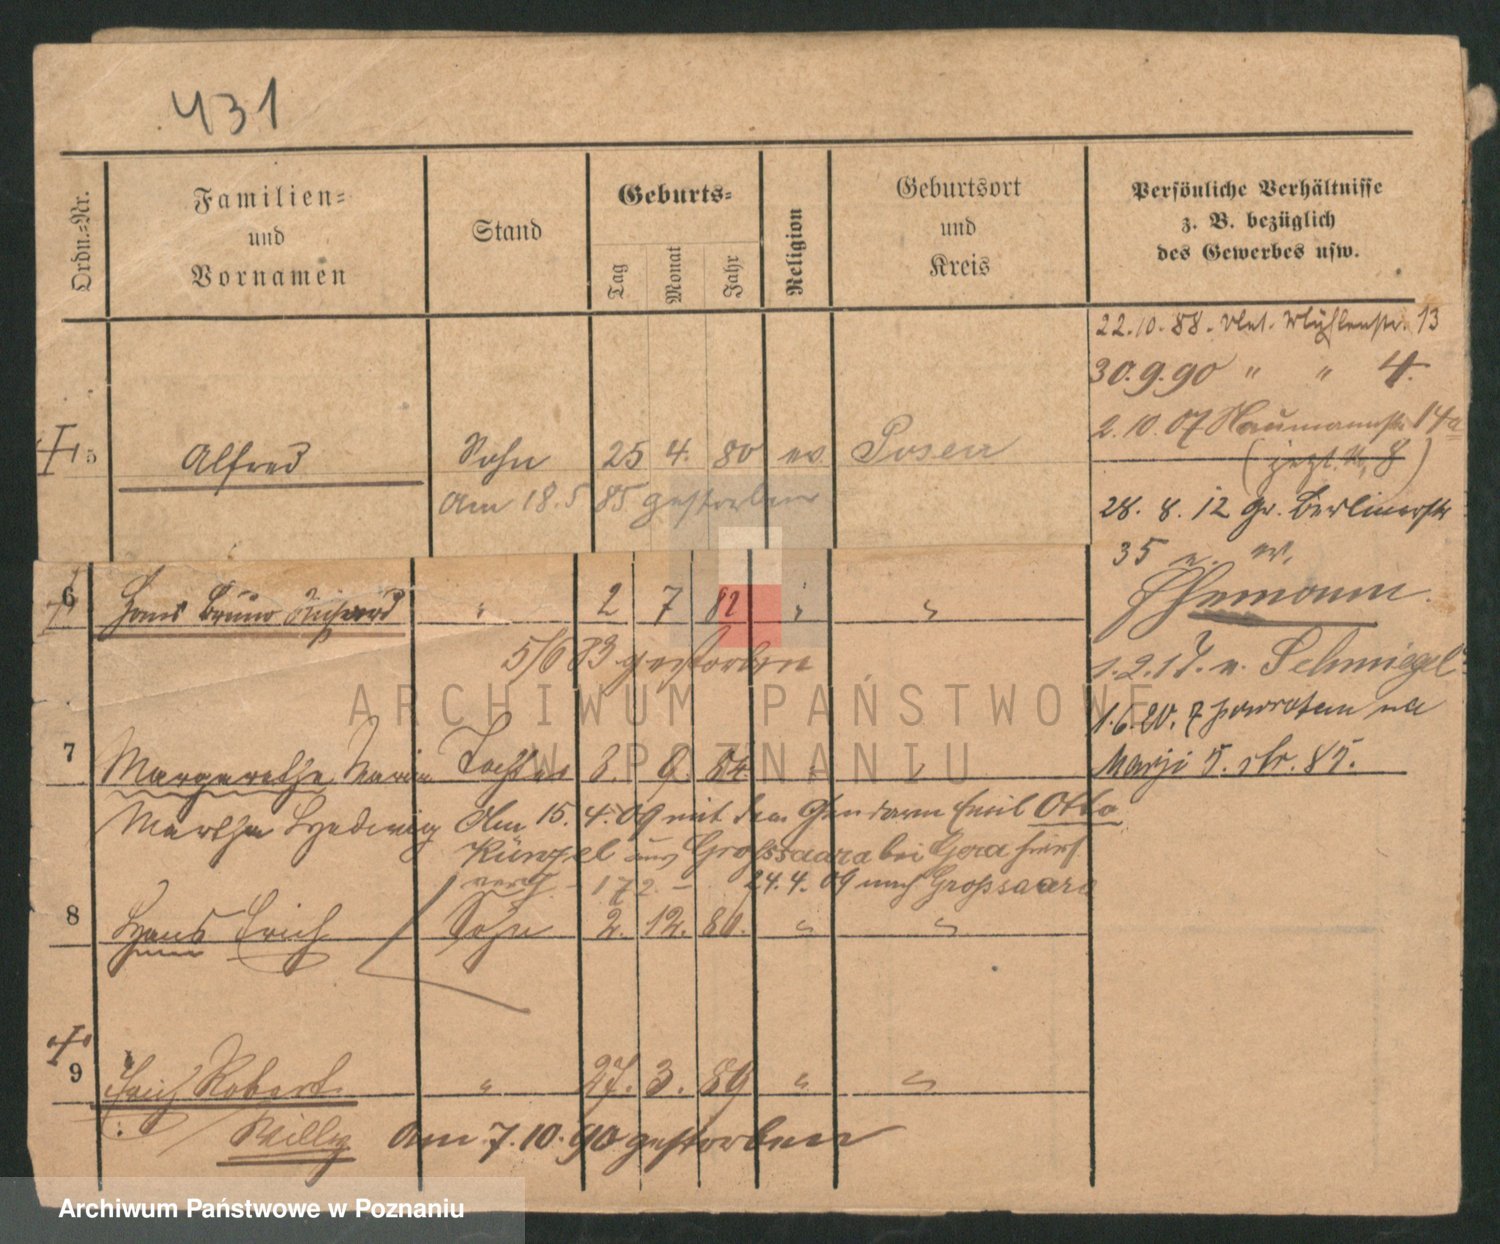 431
Ordn.=Nr.
Familien=
und
Vornamen
Stand
Geburts=
Tag
Monat
Jahr
Religion
Geburtsort
und
Kreis
Persönliche Verhältnisse
z. B. bezüglich
des Gewerbes usw.
22.10.88. Mühlenstr. 13
30.9.90 " " 4.
2.10.07 Naumannstr 14a
( jetzt 8 )
28. 8. 12 Gr. Berlinerstr
35
Ehemann.
1.2.17. n. Schmiegel
1.6.20. z powrotem na
5 Alfred Sohn 25 4. 80 ev Posen
Am 18.5 85 gestorben
6 Hans Bruno Richard " 2 7 82 " "
5/6 83 gestorben
7 Margarethe Maria Tochter 8. 84 " "
Martha Hedwig Am 15. 4. 09 mit dem Gendarm Emil Otto
Künzel aus Grosssaara bei Gera
verh. - 172 - 24.4.09 nach Grosssaara
8 Hans Erich Sohn 2. 12. 86. " "
9 Erich Robert " 27. 3. 89 " "
Willy Am 7.10.90 gestorben
ARCHIWUM PAŃSTWOWE
W POZNANIU
Archiwum Państwowe w Poznaniu